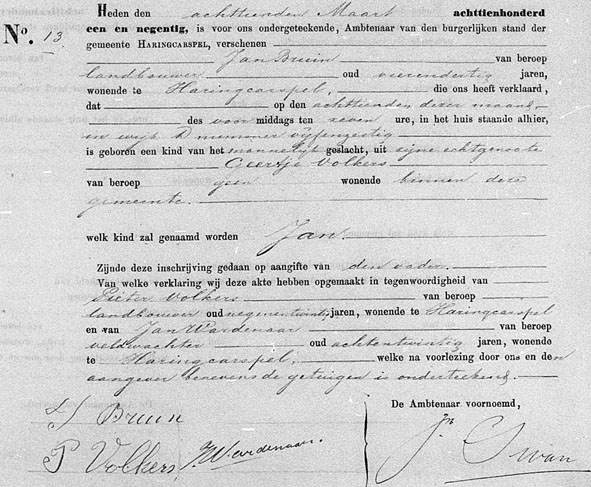 No. 13
Heden den achttienden Maart achttienhonderd
een en negentig, is voor ons ondergeteekende, Ambtenaar van den burgerlijken stand der
gemeente HARINGCARSPEL, verschenen
Jan Bruin van beroep
landbouwer oud vierendertig jaren,
wonende te Haringcarspel, die ons heeft verklaard,
dat op den achttienden dezer maand,
des voormiddags ten zeven ure, in het huis staande alhier,
in wijk D nummer vijfenzestig
is geboren een kind van het mannelijk geslacht, uit zijne echtgenoote
Geertje Volkers
van beroep geen wonende binnen deze
gemeente.
welk kind zal genaamd worden Jan.
Zijnde deze inschrijving gedaan op aangifte van den vader.
Van welke verklaring wij deze akte hebben opgemaakt in tegenwoordigheid van
Pieter Volkers van beroep
landbouwer oud negenentwintig jaren, wonende te Haringcarspel
en van Jan Wardenaar van beroep
veldwachter oud achtentwintig jaren, wonende
te Haringcarspel, welke na voorlezing door ons en den
aangever benevens de getuigen is onderteekend.
De Ambtenaar voornoemd,
J Bruin
P Volkers J. Wardenaar.
Jn Swan